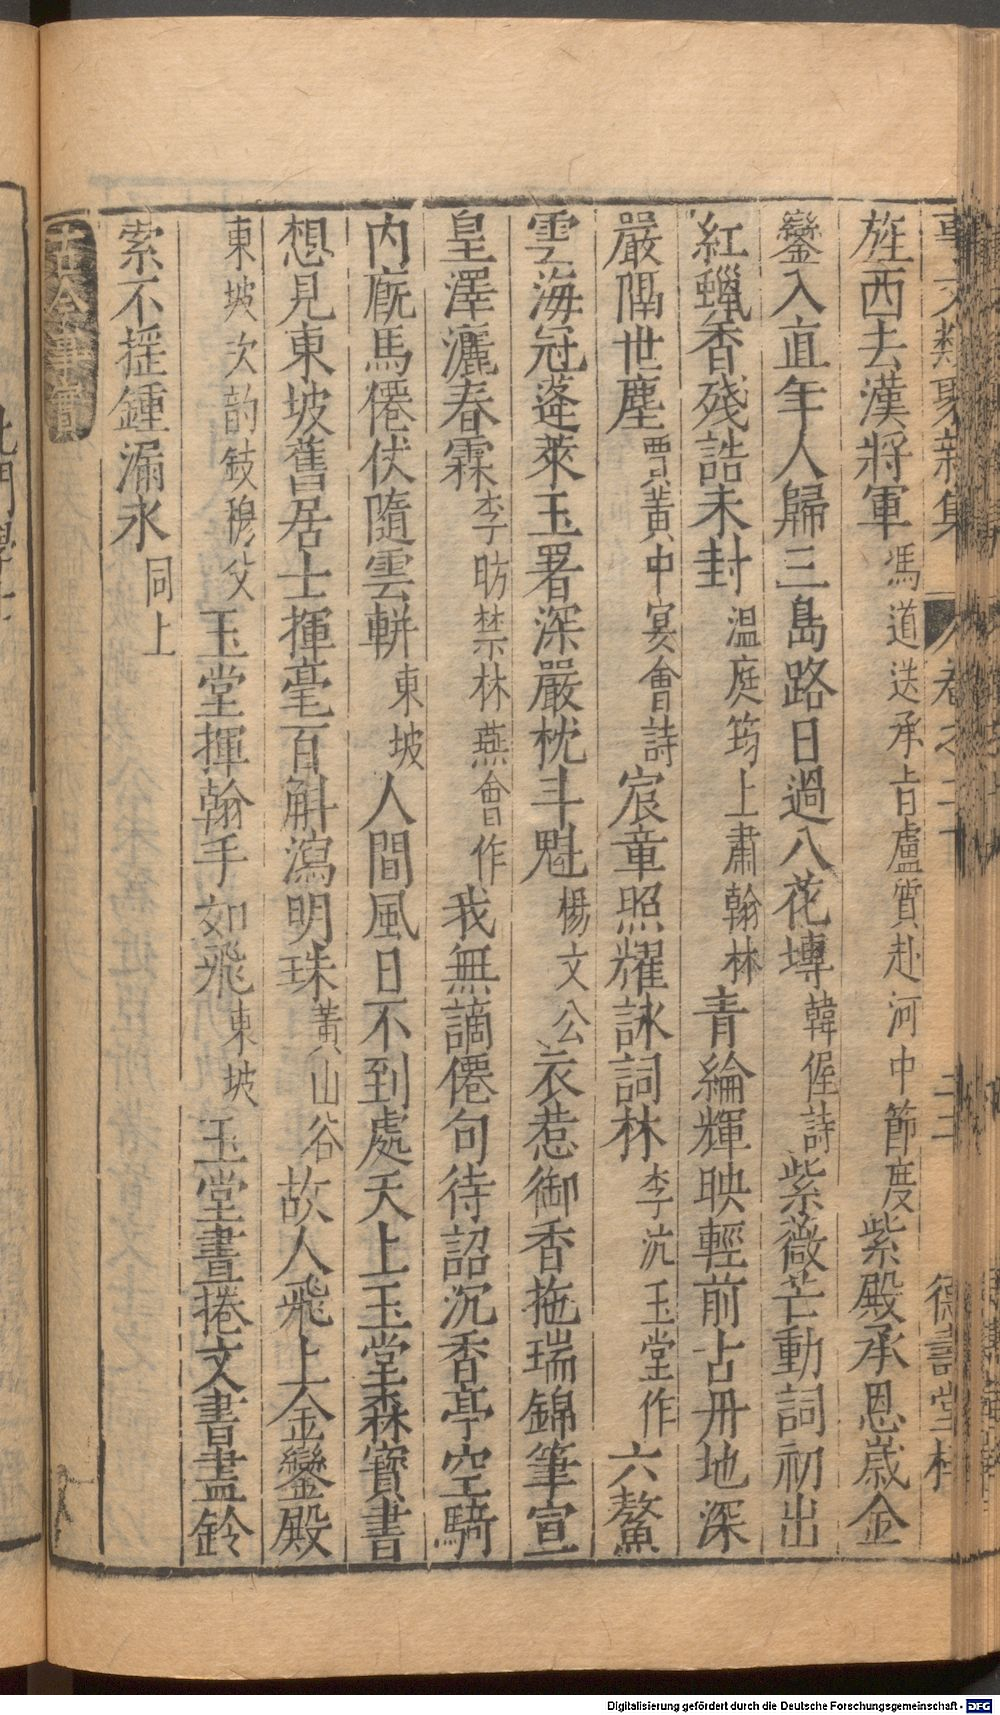 事文類聚新集 卷之二十 三十三 德壽堂梓
旌西去漢將軍馮道送承㫖盧質赴河中節度紫殿承恩歲金
鑾入直年人歸三島路日過八花塼韓偓詩紫薇芒動詞初出
紅蠟香殘誥未封温庭筠上肅翰林青綸輝映輕前占冊地深
嚴隔世塵賈黃中寞會詩宸章照耀詠詞林李沆玉堂作六鰲
雲海冠蓬萊玉署深嚴枕斗魁楊文公衣惹御香拖瑞錦筆宣
皇澤灑春霖李昉禁林燕會作我無謫僊句待詔沉香亭空騎
内廐馬僊伏隨雲軿東坡人間風日不到處天上玉堂森寶書
想見東坡舊居士揮毫百斛瀉明珠黃山谷故人飛上金鑾殿
東坡次韵錢穆父玉堂揮翰手如飛東坡玉堂晝捲文書盡鈴
索不揺鍾漏永同上
古今事實
北門學士
Digitalisierung gefördert durch die Deutsche Forschungsgemeinschaft - DFG